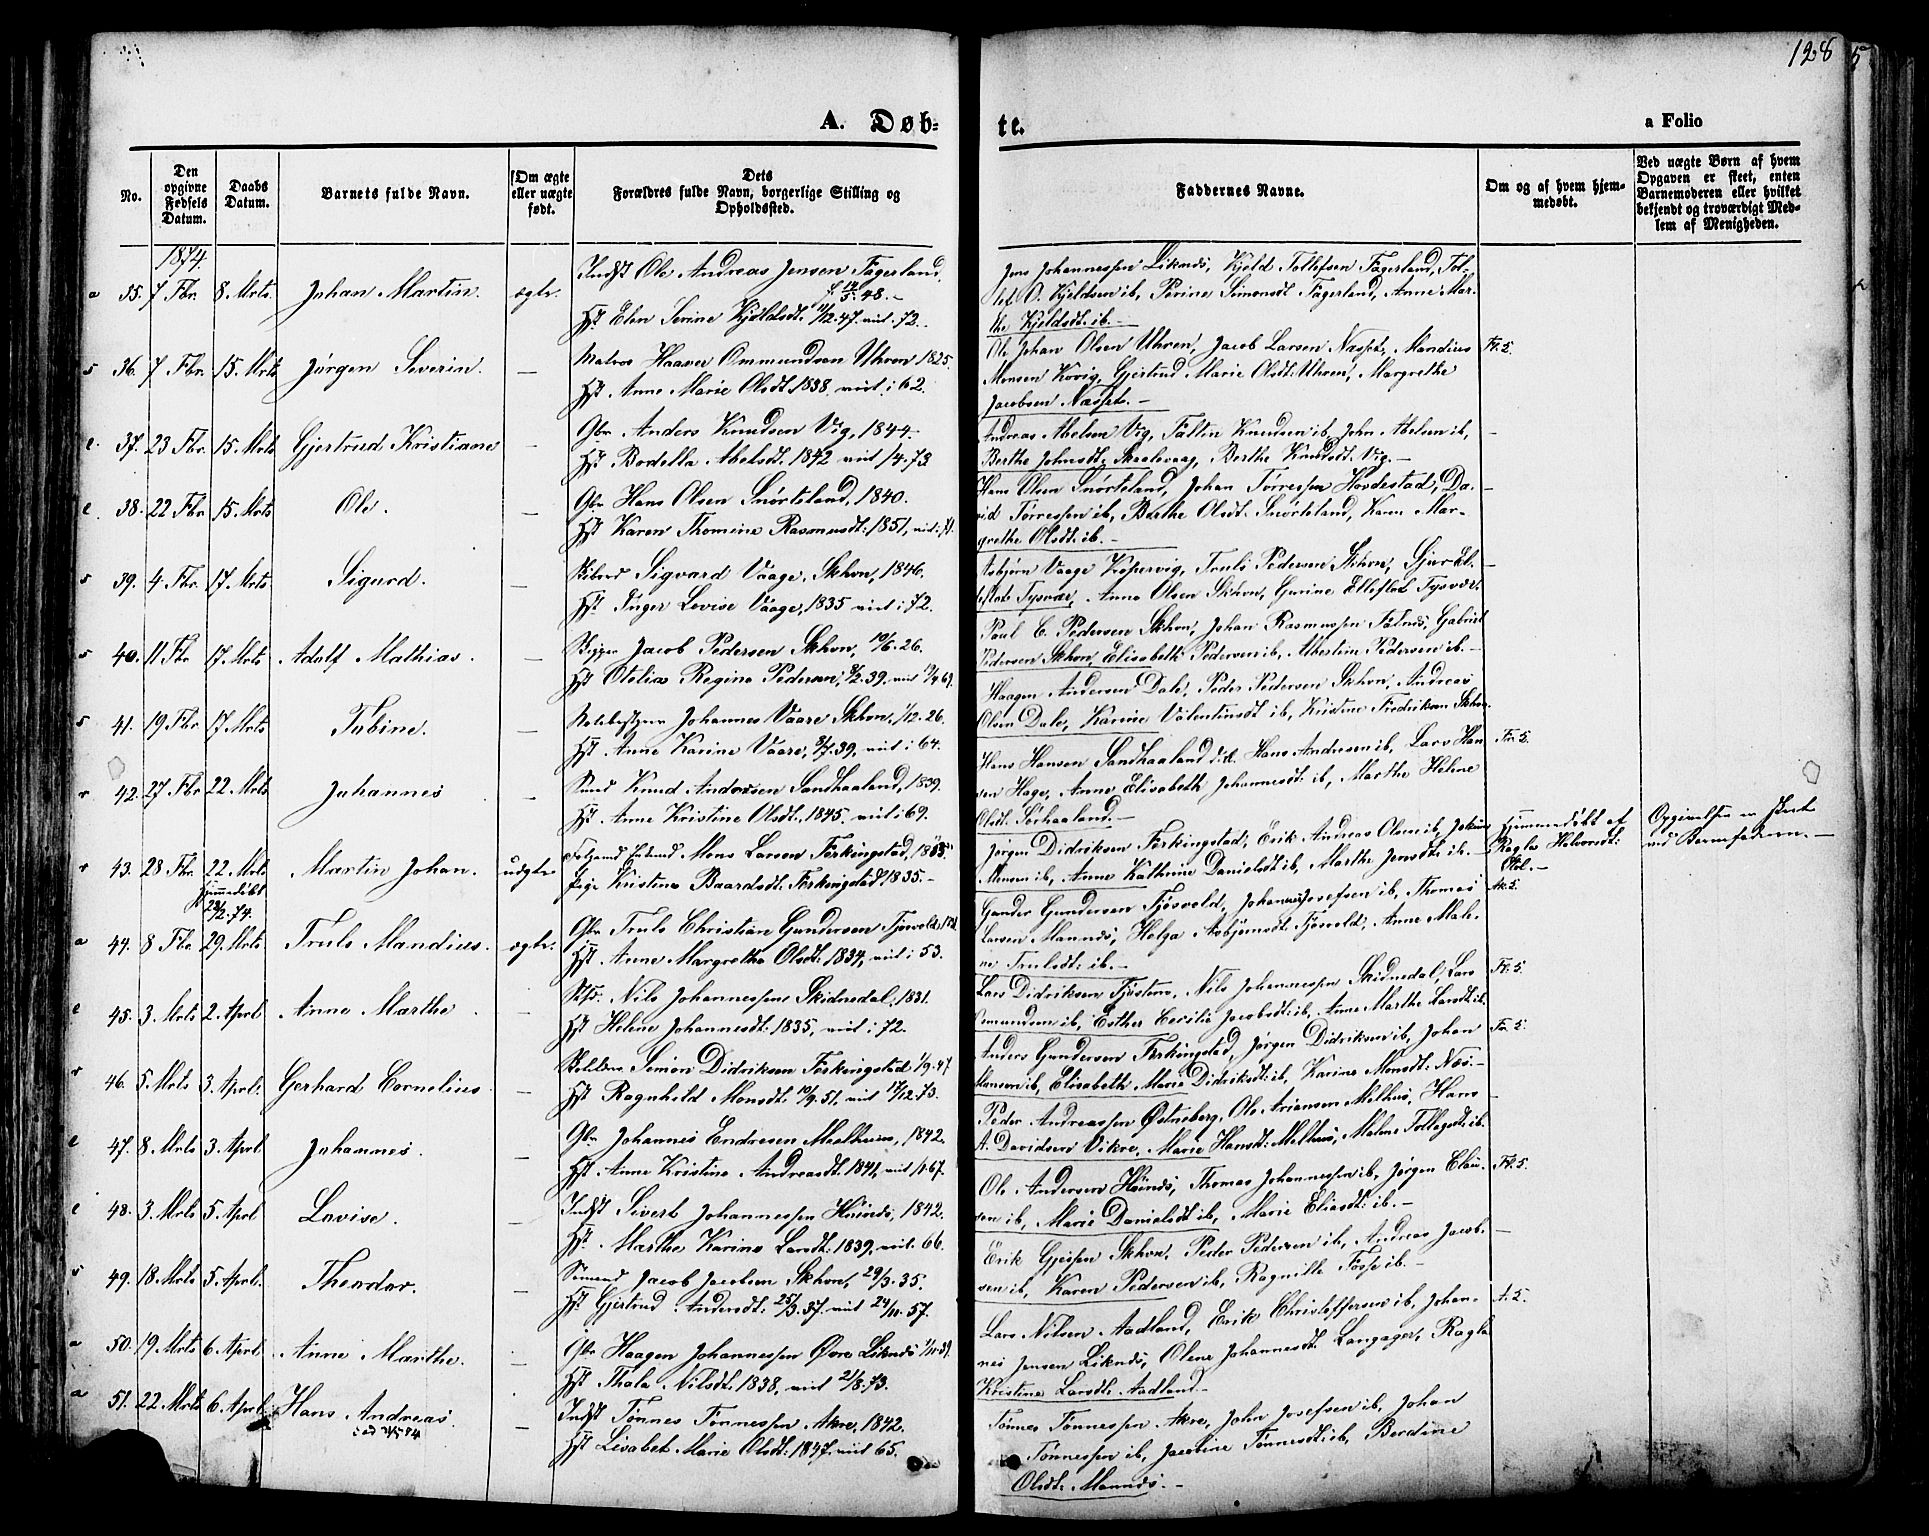 128
A. Døb-
te.
a Folio
No.
Den opgivne Fødsels Datum.
Daabs Datum.
Barnets fulde Navn.
Om ægte eller uægte født.
Dets
Forældres fulde Navn, borgerlige Stilling og
Opholdssted.
Faddernes Navne.
Om og af hvem hjem-
medøbt.
Ved uægte Børn af hvem
Opgaven er skeet, enten
Barnemoderen eller hvilket
bekjendt og troværdigt Med-
lem af Menigheden.
1874.
a 35. 7 Fbr. 8 Mrts. Johan Martin. ægte. Indst Ole Andreas Jensen Fagerland.
Hst Elen Serine Kjeldsdt. 11/12.47. viet. 72.
Jens Johannessen Liknes, Kjeld Tollefsen Fagerland, Tol-
lef O. Kjeldsen ib, Perine Simonsdt Fagerland, Anne Mar-
the Kjeldsdt. ib.-
s 36. 7 Fbr. 15. Mrts Jørgen Severin. — Matros Haaver Ommundsen Uhren 1825.
Hst Anne Marie Olsdt. 1838 viet i 62.
Ole Johan Olsen Uhren, Jacob Larsen Næsse, Mandius
Monsen Kovig, Gjertrud Marie Olsdt. Uhren, Margrethe
Jacobsen Næsse.-
e. 37. 23 Fbr. 15. Mrts Gjertrud Kristiane — Gbr Anders Knudsen Vig, 1844.
Hst Bodella Abelsdt. 1842 viet 14.73
Andreas Abelsen Vig, Faltin Knudsen ib, John Abelsen ib,
Berthe Johnsdt. Skaalevaag, Berthe Knudsdt. Vig.-
e. 38. 22 Fbr 15. Mrts Ole. — Gbr Hans Olsen Snørteland, 1840.
Hst Karen Thomine Rasmusdt. 1851, viet i 71.
Hans Olsen Snørteland, Johan Torressen Hovdestad, Da-
vid Torressen ib, Berthe Olsdt. Snørteland, Karen Mar-
grethe Olsdt. ib.-
s 39. 4. Fbr. 17. Mrts. Sigurd. — Sigvard Vaage, Skhvn, 1846.
Hst Inger Lovise Vaage, 1835 viet i 72.
Asbjørn Vaage Kopervig, Truls Pedersen Skhvn,
Tysvær, Anne Olsen Skhvn, Gurine Elleflot Tysvær.
s 40. 11 Fbr 17. Mrts Adolf Mathias. — Jacob Pedersen Skhvn, 10/6.26.
Hst Otelia Regine Pedersen,
Paul C. Pedersen Skhvn, Johan Rasmussen Falnes, Gabriel
Pedersen Skhvn, Elisabeth Pedersen ib, Albertine Pedersen ib.-
s 41. 19 Fbr 17. Mrts Tabine. — Johannes Vaare Skhvn, 1/12.26.
Hst. Anne Karine Vaare, viet i 64.
Haagen Andersen Dale, Peder Pedersen Skhvn, Andreas
Olsen Dale, Karine Valentinsdt ib, Kristine Fredriksen Skhvn.
r 42. 27 Fbr. 22. Mrts Johannes — Smed Knud Andersen Sandhaaland, 1839.
Hst Anne Kristine Olsdt. 1845. viet i 69.
Hans Hansen Sandhaaland, Hans Andresen ib, Lars Han-
sen Hage, Anne Elisabeth Johannesdt. ib, Marthe Helene
Olsdt. Sørhaaland.-
r 43. 28 Fbr. 22. Mrts Martin Johan. uægte Mons Larsen Ferkingstad, 1835.
Pige Kristine Baardsdt. Ferkingstad, 1835.-
Hjemmedøbt 28/2.74.
Jørgen Didriksen Ferkingstad, Erik Andreas Olsen ib,
Monsen ib, Anne Kathrine Danielsdt ib, Marthe Jensdt. ib.-
Hjemmedøbt af
Ragla Helvorsdt.
Opgivelsen er skeet
ved Barnefaderen.-
a 44. 8 Fbr 29. Mrts Truls Mandius. ægte. Gbr Truls Christian Gundersen Fjøsvold,
Hst. Anne Margrethe Olsdt. 1834, viet i 53.
Gunder Gundersen Fjøsvold, Johannes Josefsen ib, Thomas
Larsen Mannes, Helga Asbjørnsdt. Fjøsvold, Anne Mali-
ne Trulsdt. ib.-
e 45. 3. Mrts 2. April Anne Marthe — Nils Johannessen Skidnedal, 1831.
Hst Helene Johannesdt. 1835, viet i 72.
Lars Didriksen Fjøsene, Nils Johannessen Skidnedal, Lars
Osmundsen ib, Esther Cecilie Jacobsdt. ib, Anne Marthe Larsdt. ib.
r 46. 5. Mrts 3. April. Gerhard Cornelius. — Simon Didriksen Ferkingstad 1/9.47.
Hst Ragnhild Monsdt. 10/9.51, viet 17/12.73.
Anders Gundersen Ferkingstad, Jørgen Didriksen ib, Johan
Monsen ib, Elisabeth Marie Didriksdt. ib, Karine Monsdt. Næs.-
e 47. 8 Mrts 3. April Johannes. — Gbr Johannes Endresen Mælhuus, 1842.
Hst. Anne Kristine Andreasdt. 1841, viet
Peder Andreassen Østneberg, Ole Ariansen Melhus, Hans
A. Davidsen Vikre, Marie Hansdt. Melhus, Malene Tollagsdt. ib.
e 48. 3. Mrts 5. April Lavise. — Indst Sivert Johannessen Høines, 1842.
Hst. Marthe Karine Larsdt. 1839, viet. 66.
Ole Andersen Høines, Thomas Johannessen ib, Jørgen Clau-
sen ib, Marie Danielsdt ib, Marie Eliasdt. ib.-
s 49. 18. Mrts 5. April. Theodor. — Sømand Jacob Jacobsen Skhvn, 29/3.35.
Hst. Gjertrud Andersdt. 25/3.37. viet 24/11.57.
Erik Gjersen Skhvn, Peder Pedersen ib, Andreas Jacob-
sen ib, Karen Pedersen ib, Ragnille Fosse ib.-
a 50. 19. Mrts 6 April Anne Marthe. — Gbr Haagen Johannessen Øvre Liknes
Hst Thala Nilsdt. 1838, viet 21/8.73.
Lars Nilsen Aadland, Erik Christoffersen ib, Johan-
nes Jensen Liknes, Olene Johannesdt. Langager, Ragla
Kristine Larsdt. Aadland.-
a 51. 22 Mrts 6. April. Hans Andreas. — Indst Tønnes Tønnessen Akre, 1842.
Hst Lisabet Marie Olsdt. 1847. viet 65.
Tønnes Tønnessen Akre, John Josefsen ib, Johan
Tønnessen ib, Jacobine Tønnesdt. ib, Berdine
Olsdt. Mannes.-